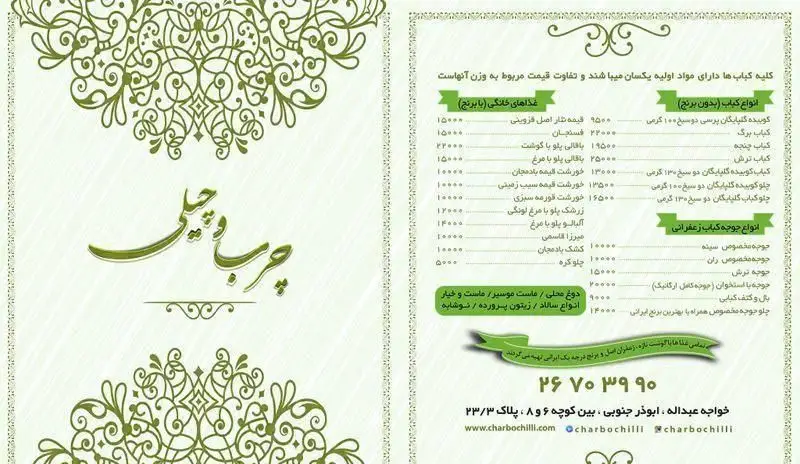 چرب و چیلی
کلیه کباب ها دارای مواد اولیه یکسان میباشند و تفاوت قیمت مربوط به وزن آنهاست
انواع کباب (بدون برنج)
کوبیده گلپایگان پرسی دو سیخ ۱۰۰ گرمی ۹۵۰۰
کباب برگ ۲۲۰۰۰
کباب چنجه ۱۹۵۰۰
کباب ترش ۲۵۰۰۰
کباب کوبیده گلپایگان دو سیخ ۱۳۰ گرمی ۱۳۰۰۰
چلو کوبیده گلپایگان دو سیخ ۱۰۰ گرمی ۱۳۵۰۰
چلو کباب گلپایگان دو سیخ ۱۳۰ گرمی ۱۶۵۰۰
انواع جوجه کباب زعفرانی
جوجه مخصوص سینه ۱۰۰۰۰
جوجه مخصوص ران ۱۰۰۰۰
جوجه ترش ۱۵۰۰۰
جوجه با استخوان (جوجه کامل ارگانیک) ۲۰۰۰۰
بال و کتف کبابی ۹۰۰۰
چلو جوجه مخصوص همراه با بهترین برنج ایرانی ۱۴۰۰۰
غذاهای خانگی (با برنج)
قیمه نثار اصل قزوینی ۱۵۰۰۰
فسنجان ۱۵۰۰۰
باقالی پلو با گوشت ۲۲۰۰۰
باقالی پلو با مرغ ۱۵۰۰۰
خورشت قیمه بادمجان ۱۰۰۰۰
خورشت قیمه سیب زمینی ۱۰۰۰۰
خورشت قورمه سبزی ۱۰۰۰۰
زرشک پلو با مرغ لونگی ۱۲۰۰۰
آلبالو پلو با مرغ ۱۴۰۰۰
میرزا قاسمی ۱۰۰۰۰
کشک بادمجان ۱۰۰۰۰
چلو کره ۵۰۰۰
دوغ محلی / ماست موسیر / ماست و خیار
انواع سالاد / زیتون پرورده / نوشابه
تمامی غذا ها با گوشت تازه ، زعفران اصل و برنج درجه یک ایرانی تهیه می گردند
۲۶ ۷۰ ۳۹ ۹۰
خواجه عبداله ، ابوذر جنوبی ، بین کوچه ۶ و ۸ ، پلاک ۲۳/۳
www.charbochilli.com charbochilli charbochilli